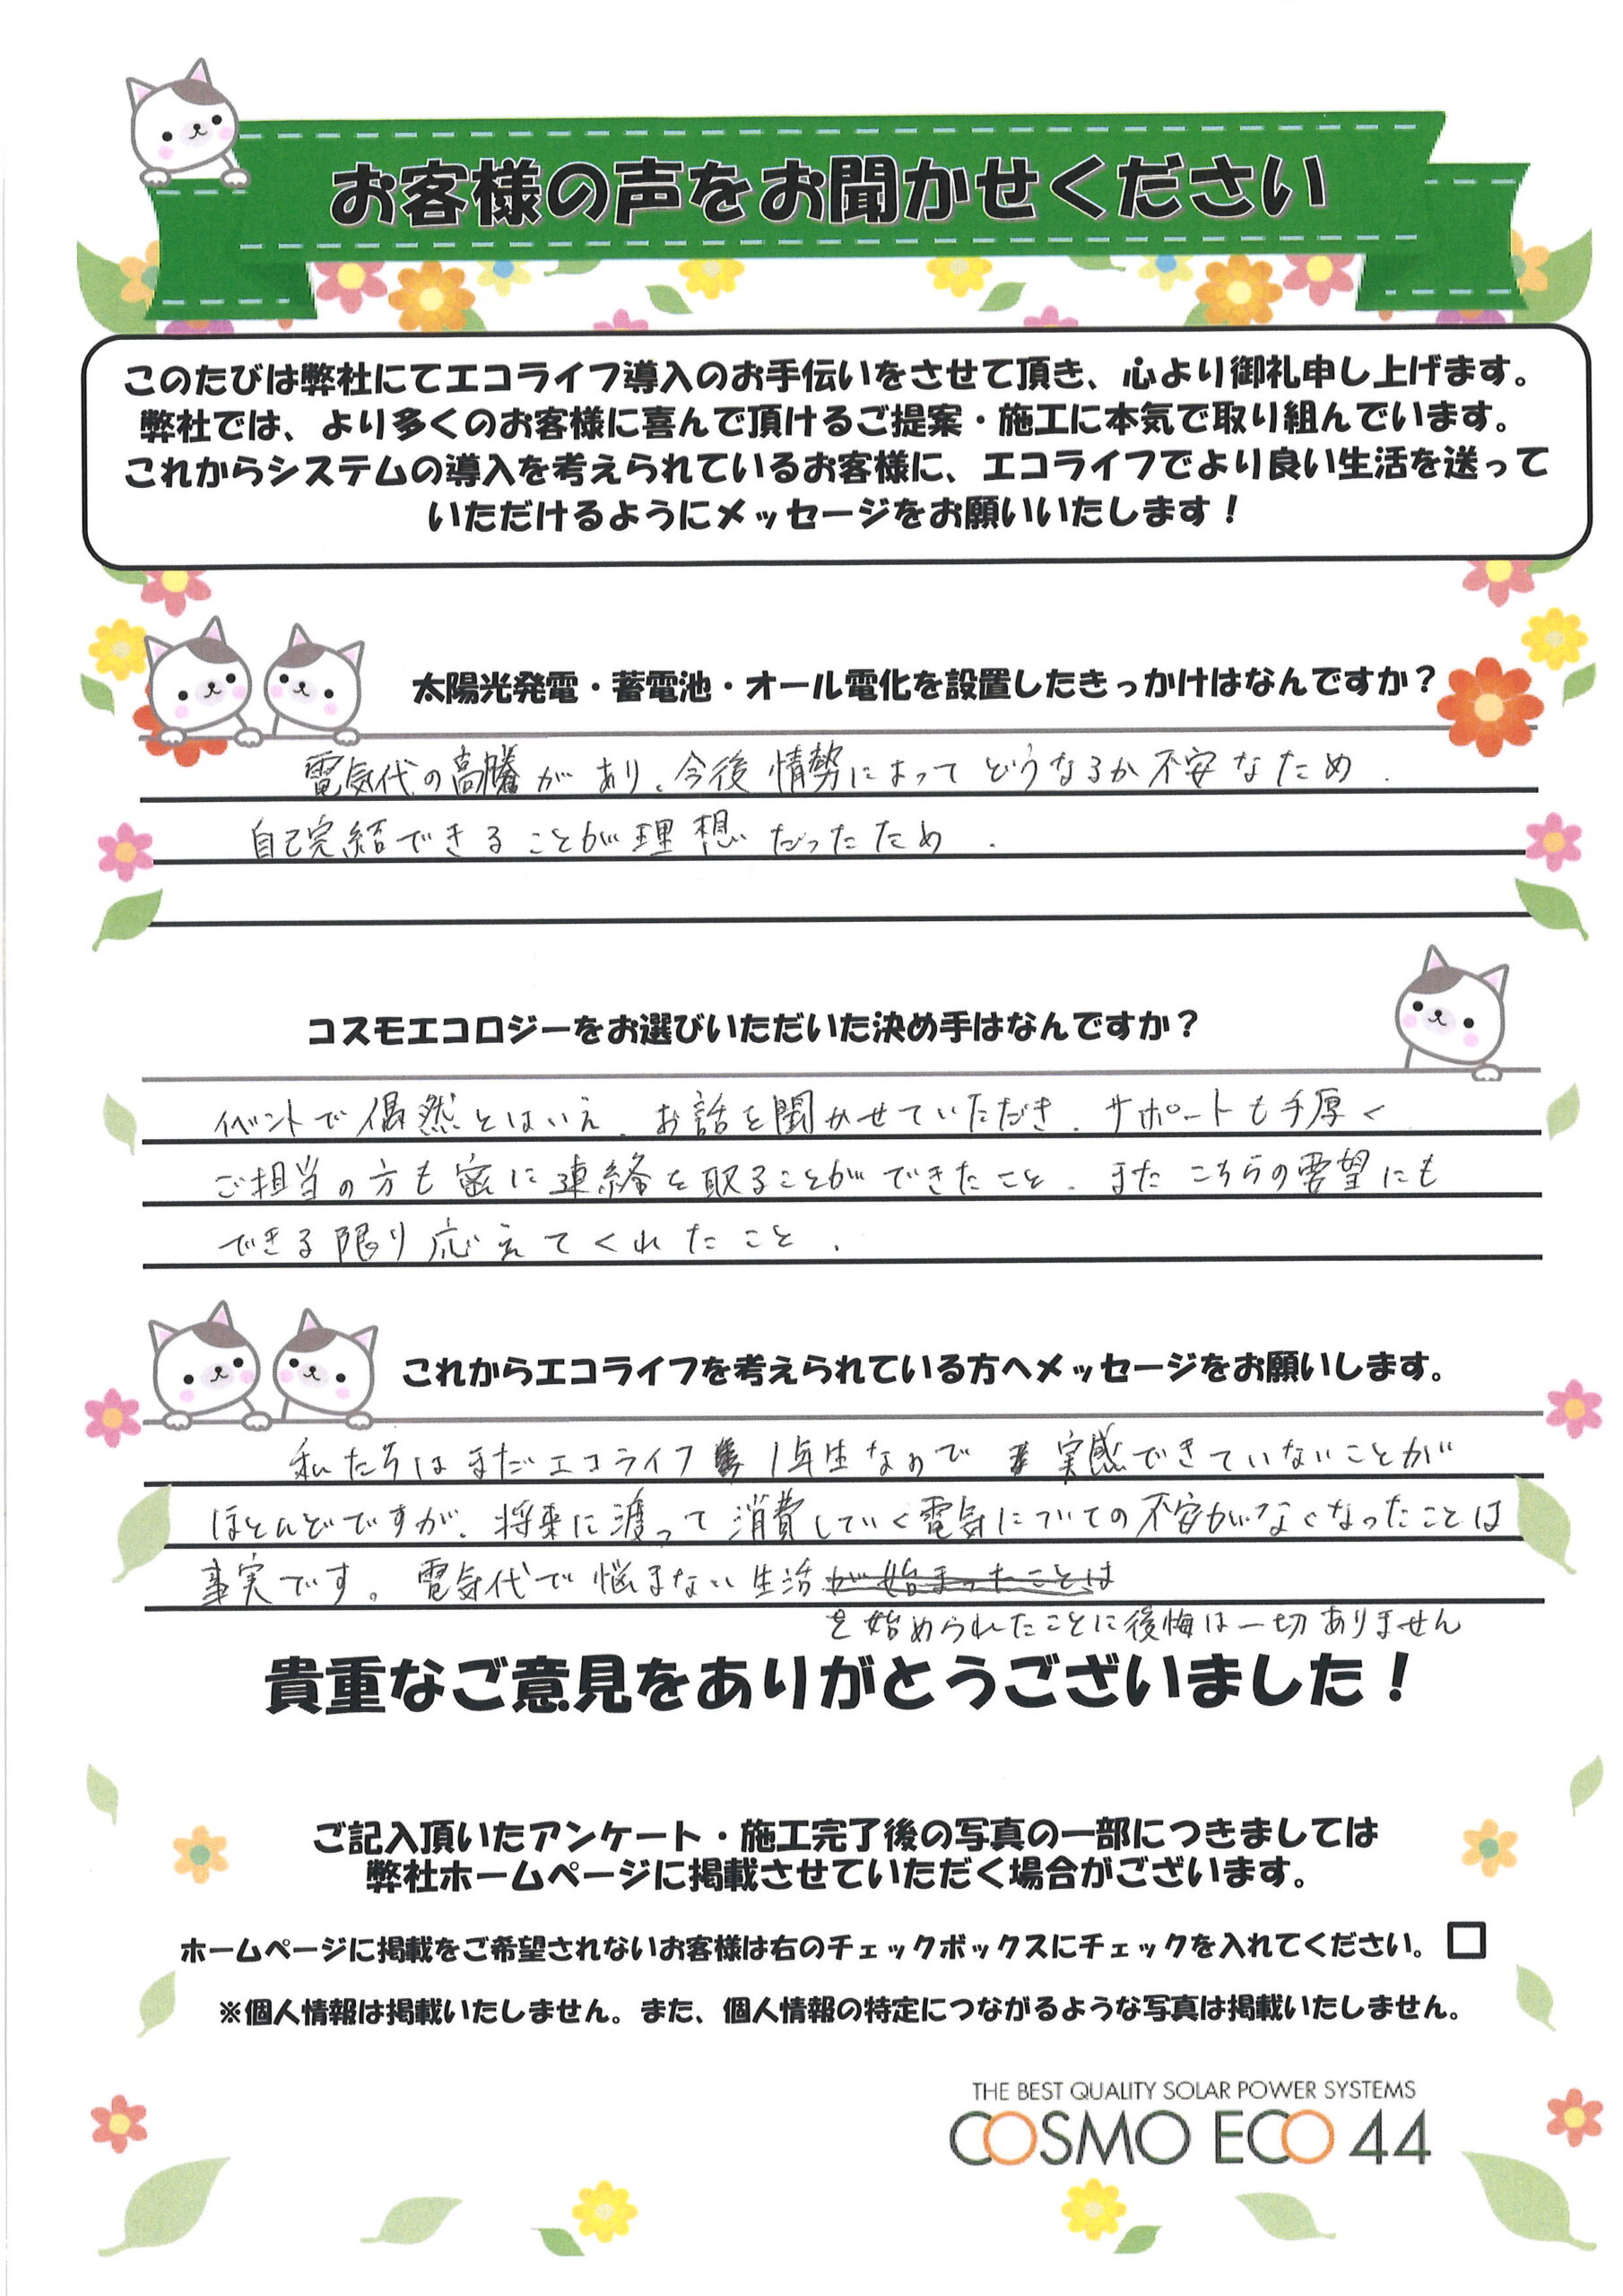 お客様の声をお聞かせください
このたびは弊社にてエコライフ導入のお手伝いをさせて頂き、心より御礼申し上げます。
弊社では、より多くのお客様に喜んで頂けるご提案・施工に本気で取り組んでいます。
これからシステムの導入を考えられているお客様に、エコライフでより良い生活を送って
いただけるようにメッセージをお願いいたします！
太陽光発電・蓄電池・オール電化を設置したきっかけはなんですか？
電気代の高騰があり、今後情勢によってどうなるか不安なため．
自己完結できることが理想だったため．
コスモエコロジーをお選びいただいた決め手はなんですか？
イベントで偶然とはいえ、お話を聞かせていただき、サポートも手厚く
ご担当の方も密に連絡を取ることができたこと、またこちらの要望にも
できる限り応えてくれたこと．
これからエコライフを考えられている方へメッセージをお願いします。
私たちはまだエコライフ1年生なので実感できていないことが
ほとんどですが、将来に渡って消費していく電気についての不安がなくなったことは
事実です。電気代で悩まない生活が始まったことは
を始められたことに後悔は一切ありません
貴重なご意見をありがとうございました！
ご記入頂いたアンケート・施工完了後の写真の一部につきましては
弊社ホームページに掲載させていただく場合がございます。
ホームページに掲載をご希望されないお客様は右のチェックボックスにチェックを入れてください。
※個人情報は掲載いたしません。また、個人情報の特定につながるような写真は掲載いたしません。
THE BEST QUALITY SOLAR POWER SYSTEMS
COSMO ECO 44